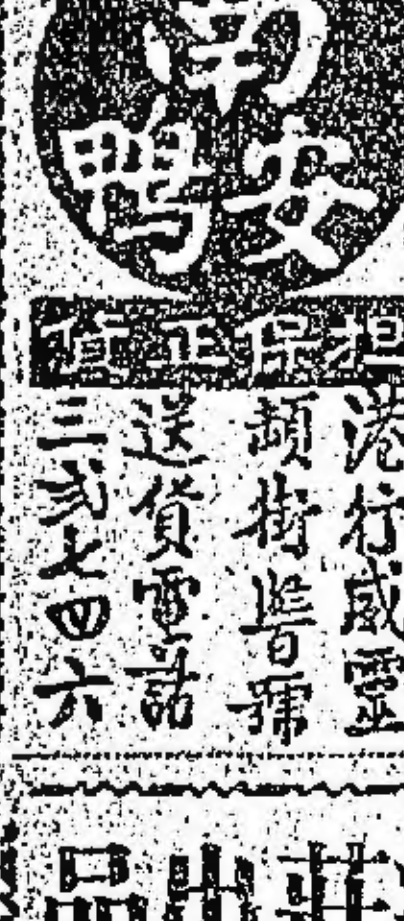 南安鴨
担保正貨
港行威靈
頓街號
送貨電話
三弍七四六
出品